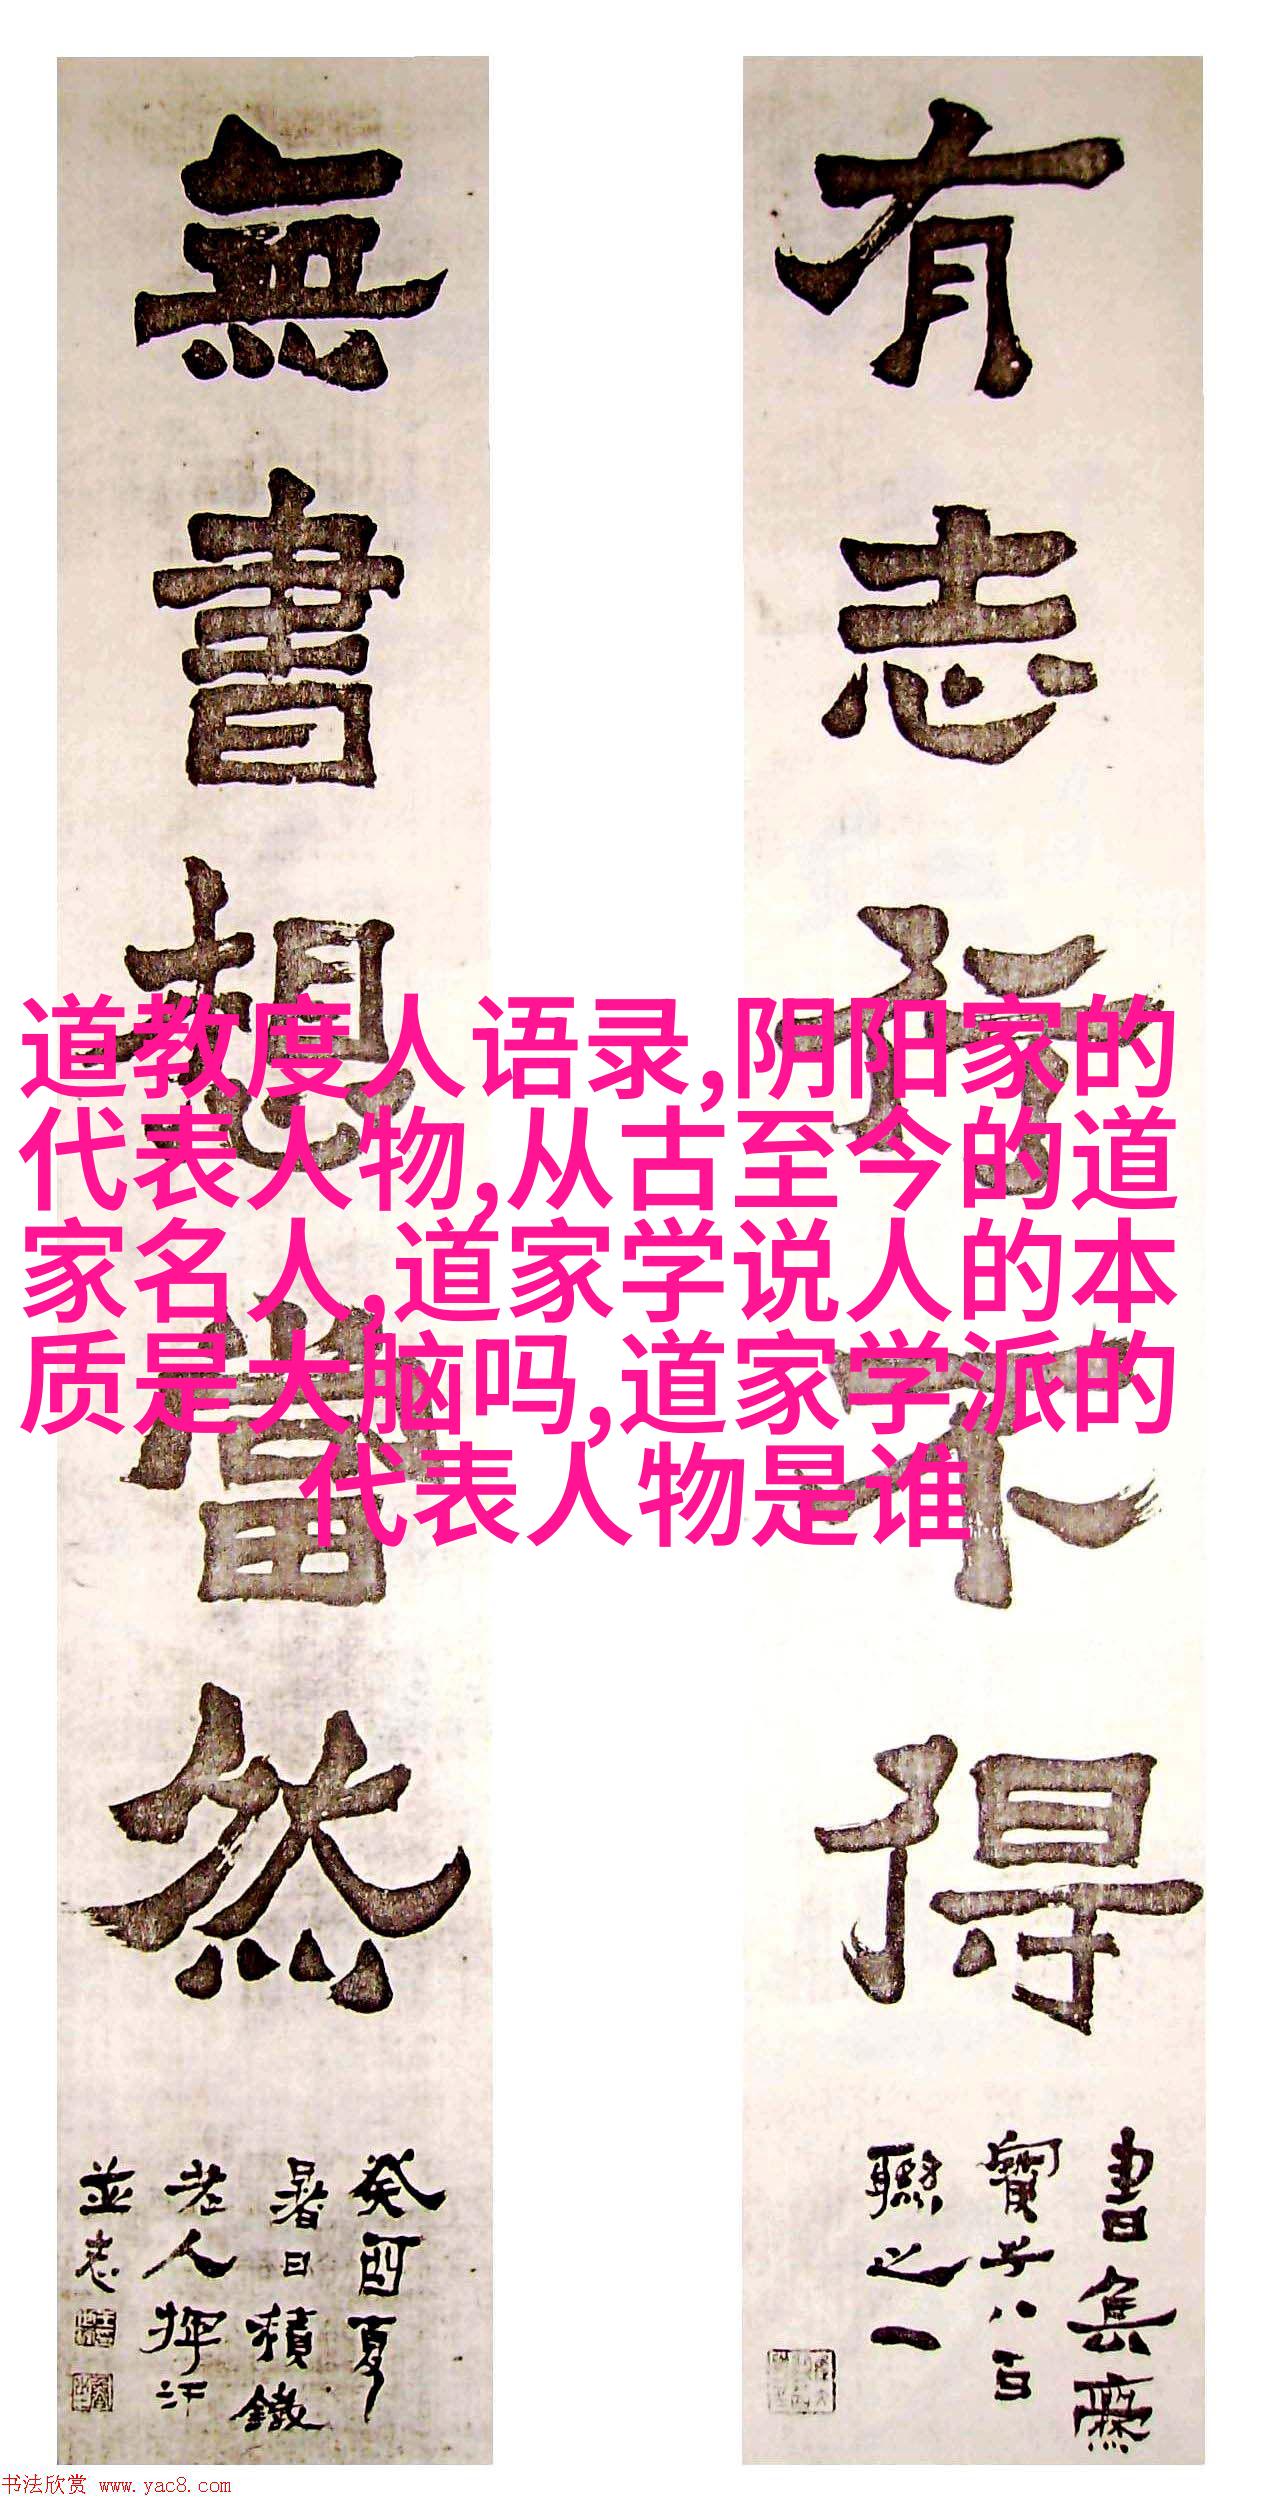 有志行不得
書焦麃
寶子八百
聯之一
無書想當然
癸酉夏
暑日積鐵
老人揮汗
並志
道教度人语录,阴阳家的
代表人物,从古至今的道
家名人,道家学说人的本
质是大脑吗,道家学派的
代表人物是谁
书法欣赏 www.yac8.com